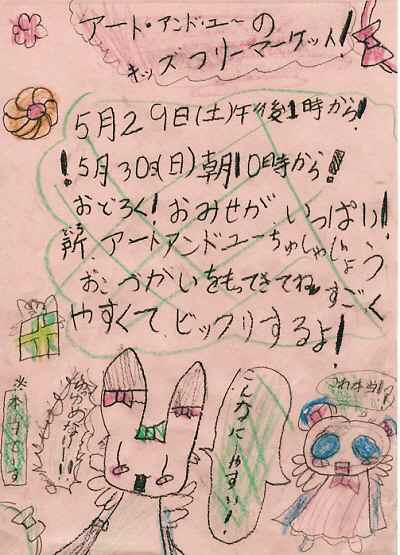 アート・アンド・ユーの
キッズフリーマーケット!
5月29日(土)午後1時から!
!5月30日(日)朝10時から!
おどろく!おみせが、いっぱい!
所、アートアンドユーちゅしゃじょう
おこづかいをもってきてね すごく
やすくて、ビックリするよ!
こんなにやすい!
これ本当!?
※本当です